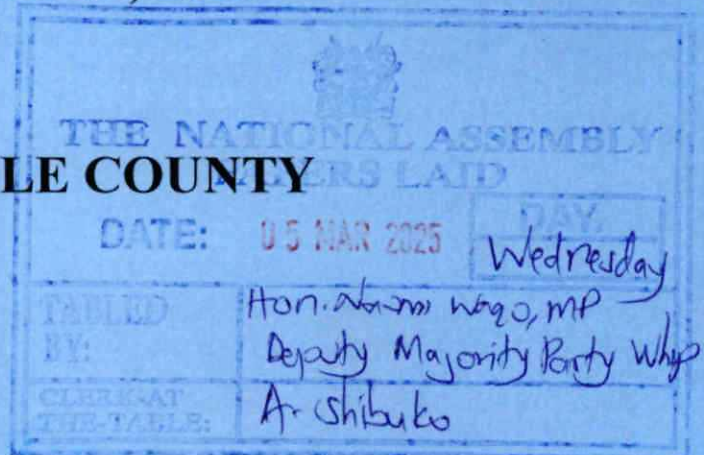 THE NATIONAL ASSEMBLY
PAPERS LAID
LE COUNTY
DATE: 05 MAR 2025 DAY.
Wednesday
TABLED BY: Hon. Naomi Waqo, MP
Deputy Majority Party Whip
CLERK-AT THE-TABLE: A. Shibuko